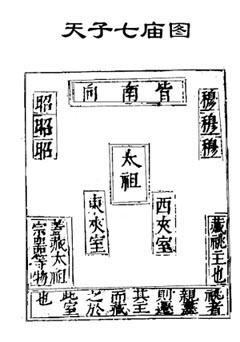 天子七庙图
皆南向
穆
穆
穆
昭
昭
昭
太祖
西夾室
東夾室
藏祧主也
蓋藏太祖
宗器等物
祧者
親盡
則遷
其主
而藏
之於
此室
也